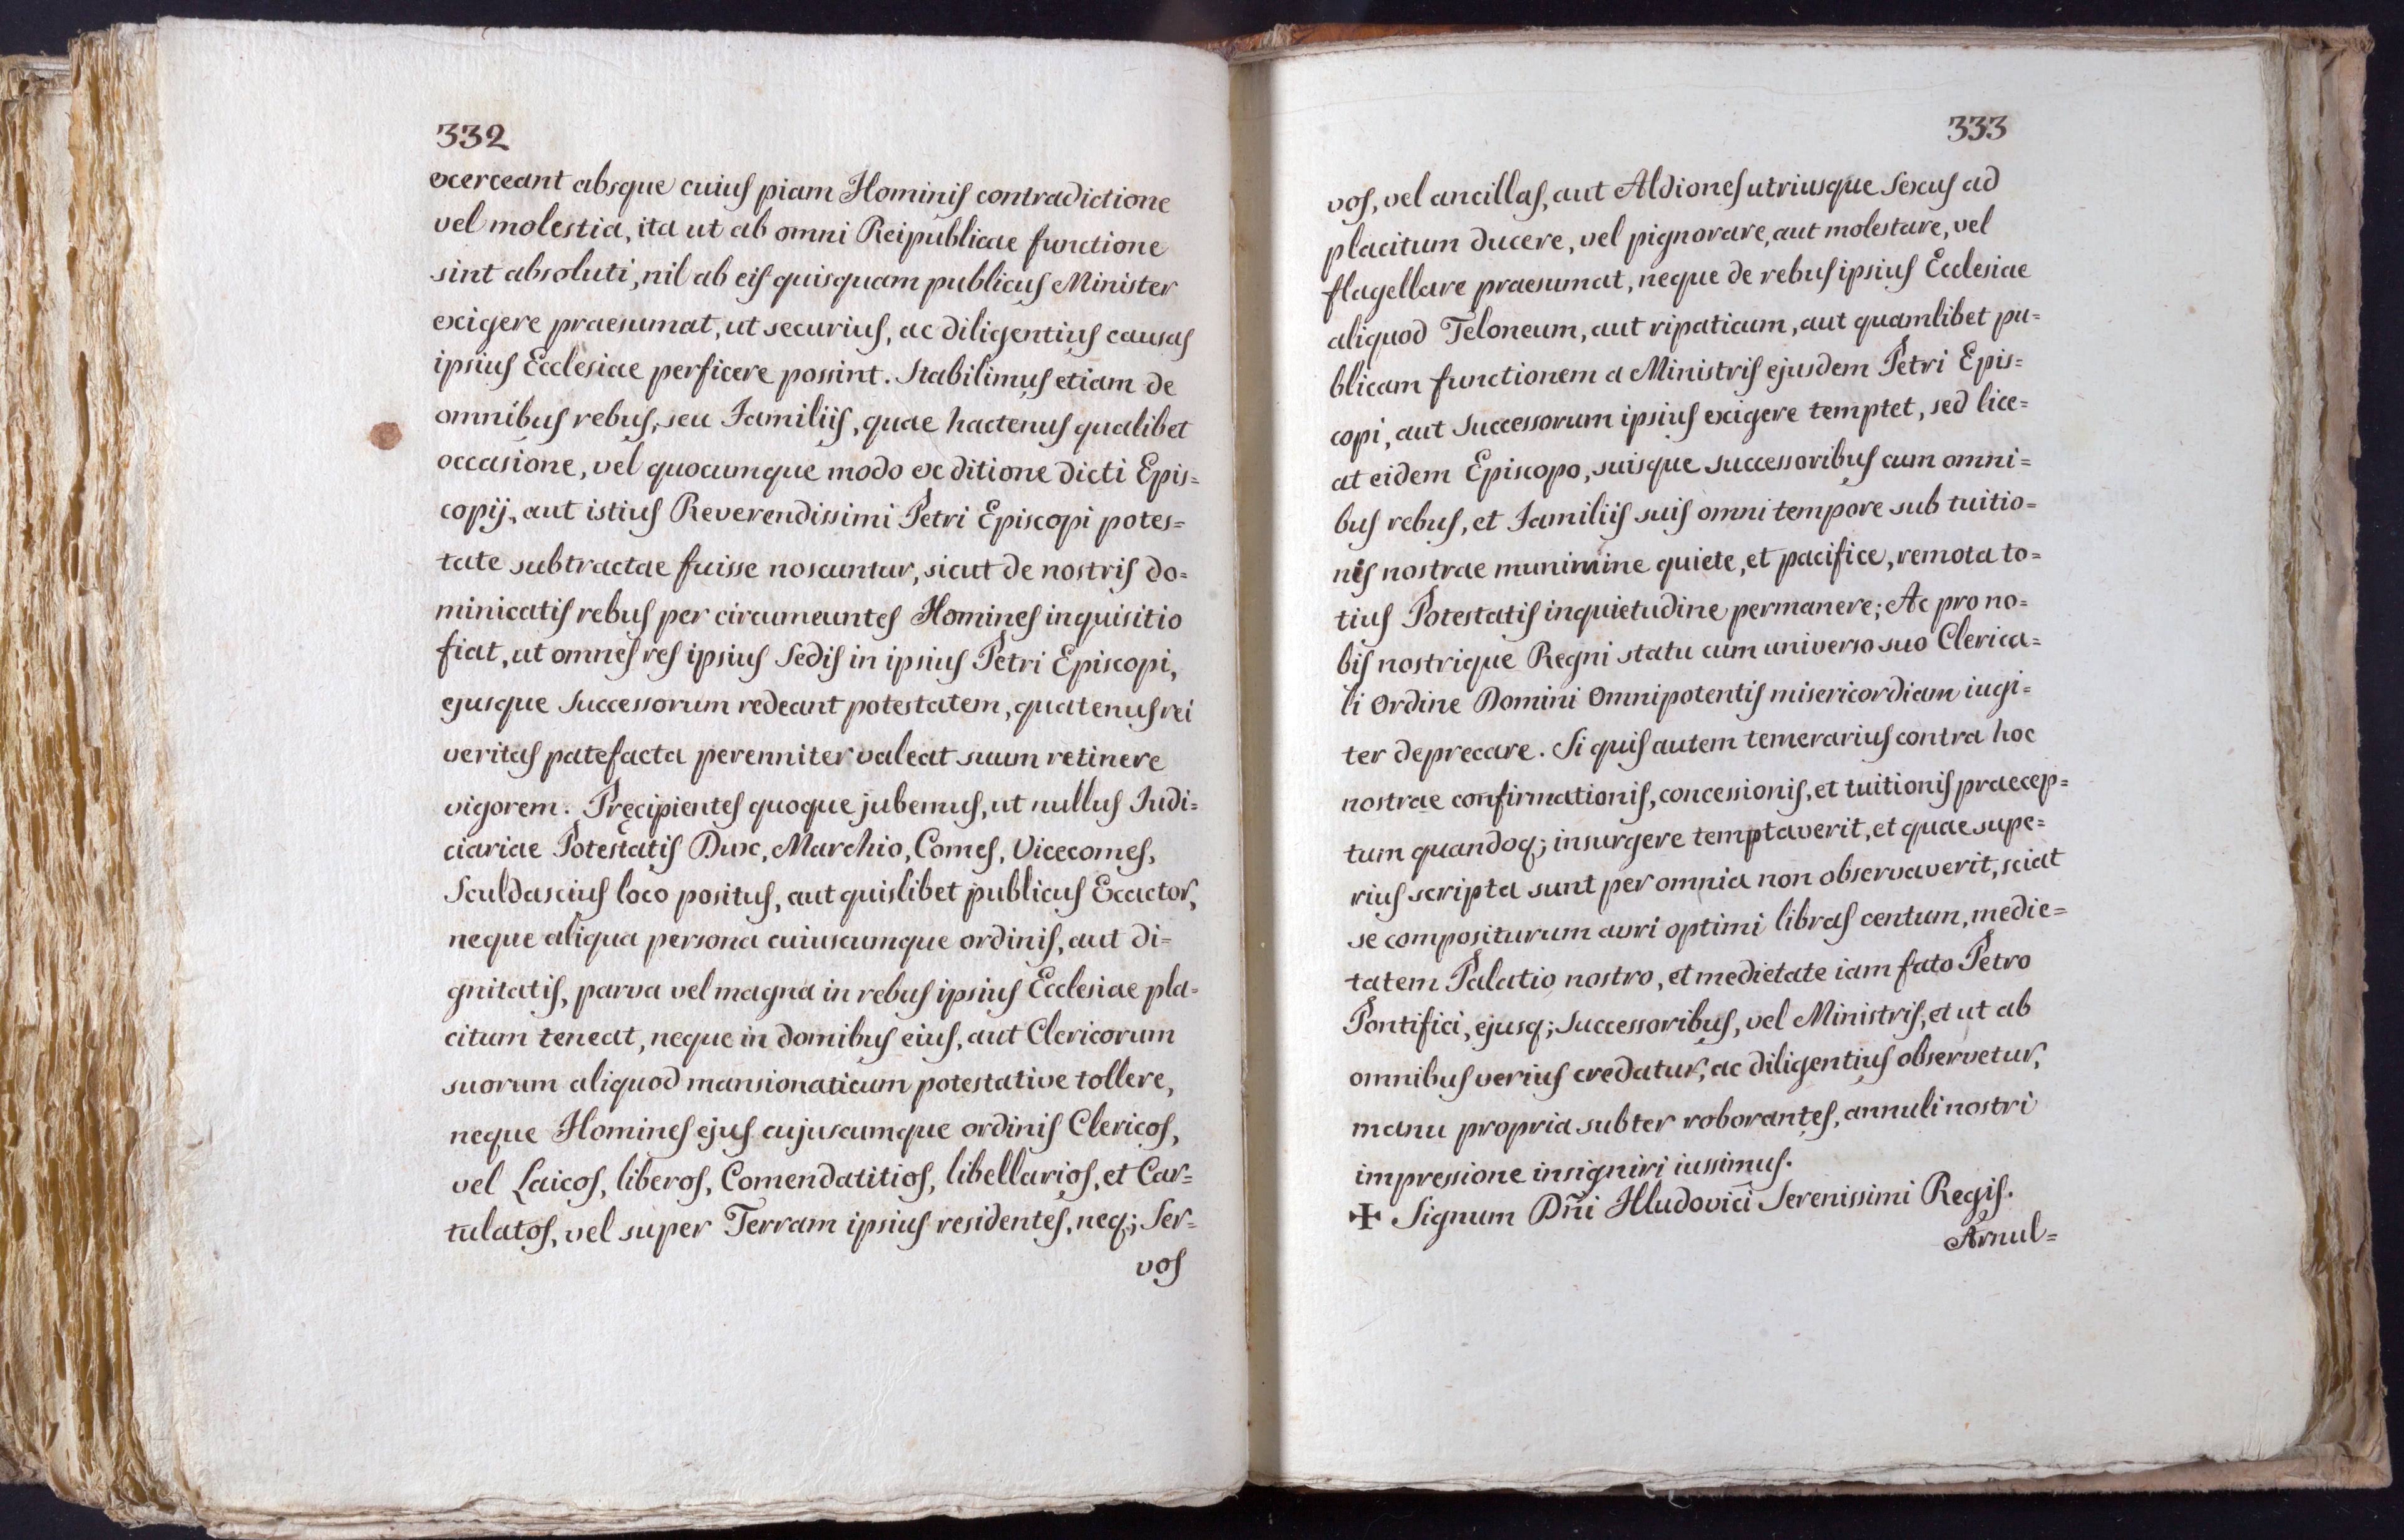 332
exerceant absque cuius piam Hominis contradictione
vel molestia, ita ut ab omni Reipublicae functione
sint absoluti, nil ab eis quisquam publicus Minister
exigere praesumat, ut securius, ac diligentius causas
ipsius Ecclesiae perficere possint. Stabilimus etiam de
omnibus rebus, seu Familiis, quae hactenus qualibet
occasione, vel quocumque modo ex ditione dicti Epis=
copij, aut istius Reverendissimi Petri Episcopi potes=
tate subtractae fuisse noscuntur, sicut de nostris do=
minicatis rebus per circumeuntes Homines inquisitio
fiat, ut omnes res ipsius Sedis in ipsius Petri Episcopi,
ejusque Successorum redeant potestatem, quatenus rei
veritas patefacta perenniter valeat suum retinere
vigorem. Pręcipientes quoque jubemus, ut nullus Iudi=
ciariae Potestatis Dux, Marchio, Comes, Vicecomes,
Sculdascius loco positus, aut quislibet publicus Exactor,
neque aliqua persona cuiuscumque ordinis, aut di=
gnitatis, parva vel magna in rebus ipsius Ecclesiae pla=
citum teneat, neque in domibus eius, aut Clericorum
suorum aliquod mansionaticum potestative tollere,
neque Homines ejus cujuscumque ordinis Clericos,
vel Laicos, liberos, Comendatitios, libellarios, et Car=
tulatos, vel super Terram ipsius residentes, neq; Ser=
vos
333
vos, vel ancillas, aut Aldiones utriusque Sexus ad
placitum ducere, vel pignorare, aut molestare, vel
flagellare praesumat, neque de rebus ipsius Ecclesiae
aliquod Teloneum, aut ripaticum, aut quamlibet pu=
blicam functionem a Ministris ejusdem Petri Epis=
copi, aut Successorum ipsius exigere temptet, sed lice=
at eidem Episcopo, suisque successoribus cum omni=
bus rebus, et Familiis suis omni tempore sub tuitio=
nis nostrae munimine quiete, et pacifice, remota to=
tius Potestatis inquietudine permanere; Ac pro no=
bis nostrique Regni statu cum universo suo Clerica=
li Ordine Domini Omnipotentis misericordiam iugi=
ter deprecare. Si quis autem temerarius contra hoc
nostrae confirmationis, concessionis, et tuitionis praecep=
tum quandoq; insurgere temptaverit, et quae supe=
rius scripta sunt per omnia non observaverit, sciat
se compositurum auri optimi libras centum, medie=
tatem Palatio nostro, et medietate iam fato Petro
Pontifici, ejusq; Successoribus, vel Ministris, et ut ab
omnibus verius credatur, ac diligentius observetur,
manu propria subter roborantes, annuli nostri
impressione insigniri iussimus.
✠ Signum Dñi Hludovici Serenissimi Regis.
Arnul=